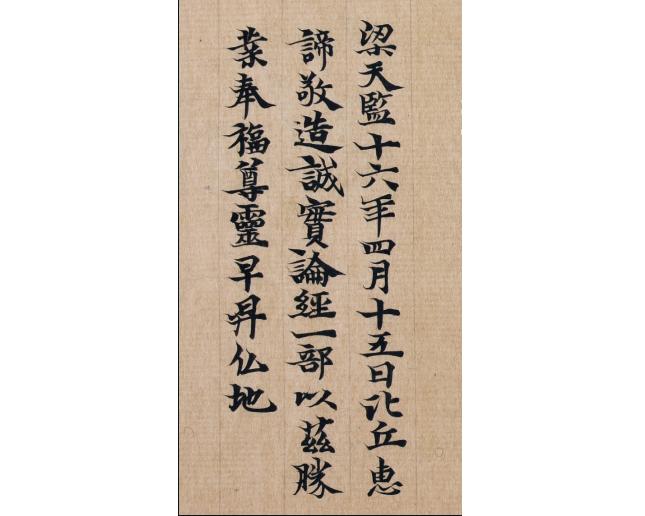 梁天監十六年四月十五日比丘惠
諦敬造誠實論經一部以茲勝
業奉福尊靈早昇仏地